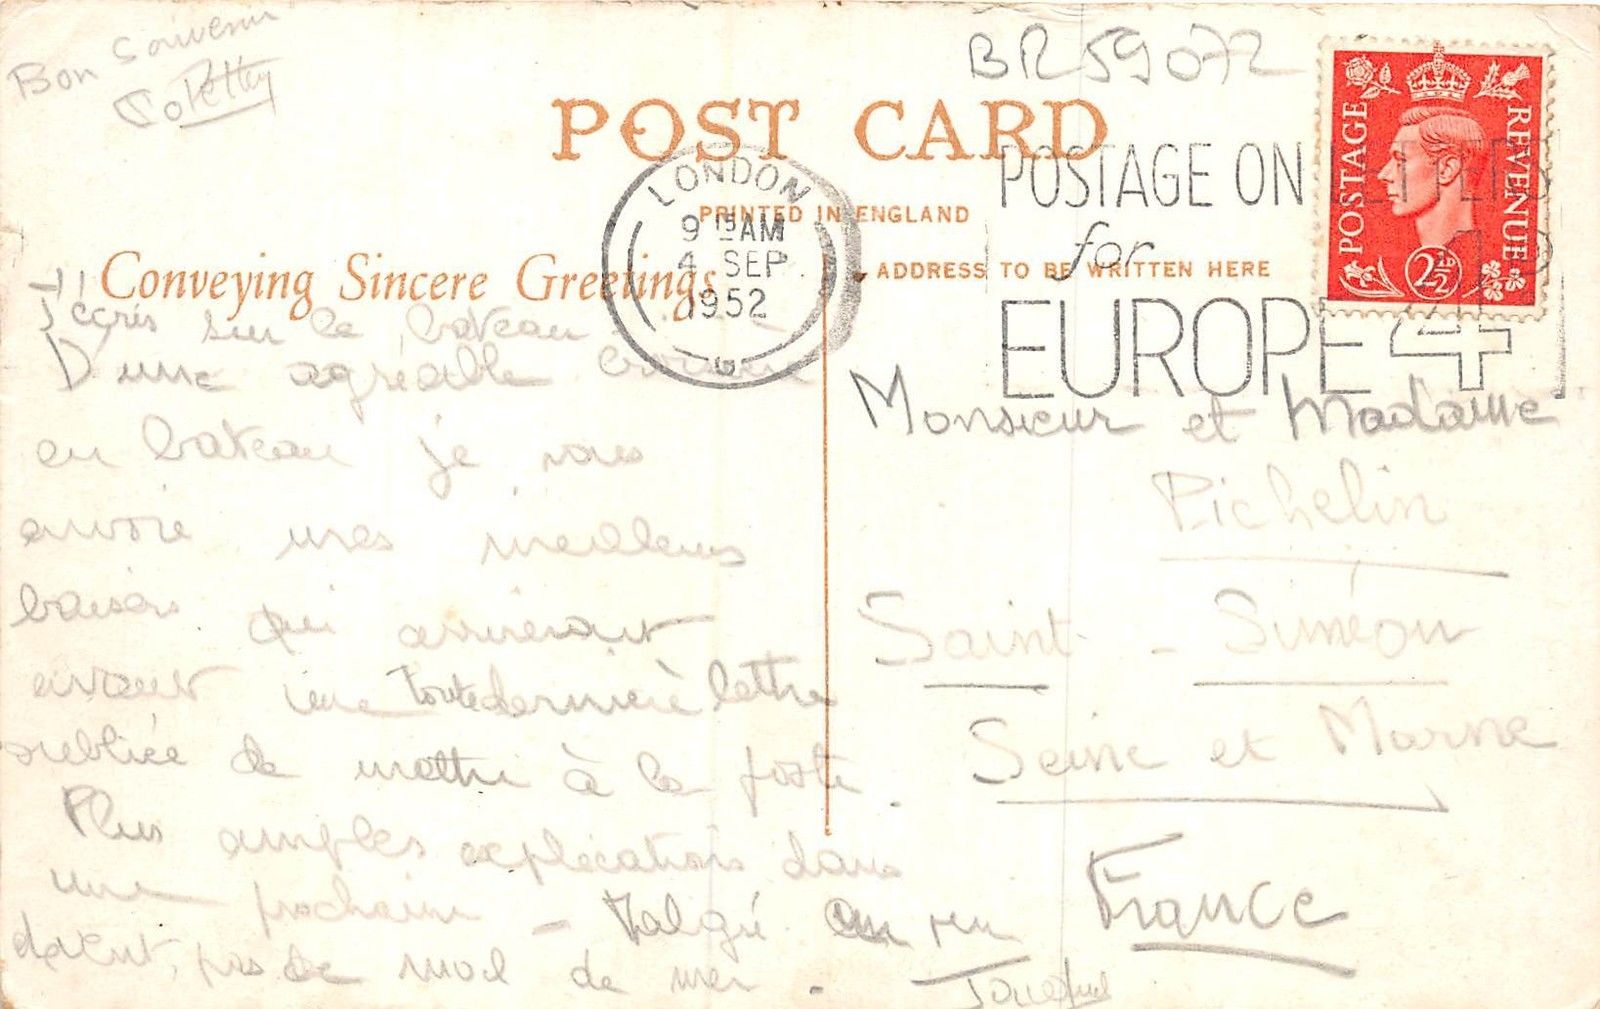 Bon Souvenir
BR 59072
POST CARD
LONDON
9 15 AM
4 SEP
1952
PRINTED IN ENGLAND
POSTAGE ON LETTERS
for
EUROPE 4
POSTAGE
REVENUE
2½
ADDRESS TO BE WRITTEN HERE
Conveying Sincere Greetings
J'écris sur le bateau
D'une agréable
en bateau je vous
envoie mes meilleurs
baisers qui arriveront
avant une toute dernière lettre
oubliée de mettre à la poste.
Plus amples explications dans
une prochaine - Malgré un peu
de vent, pas de mal de mer.
Monsieur et Madame
Pichelin
Saint - Siméon
Seine et Marne
France